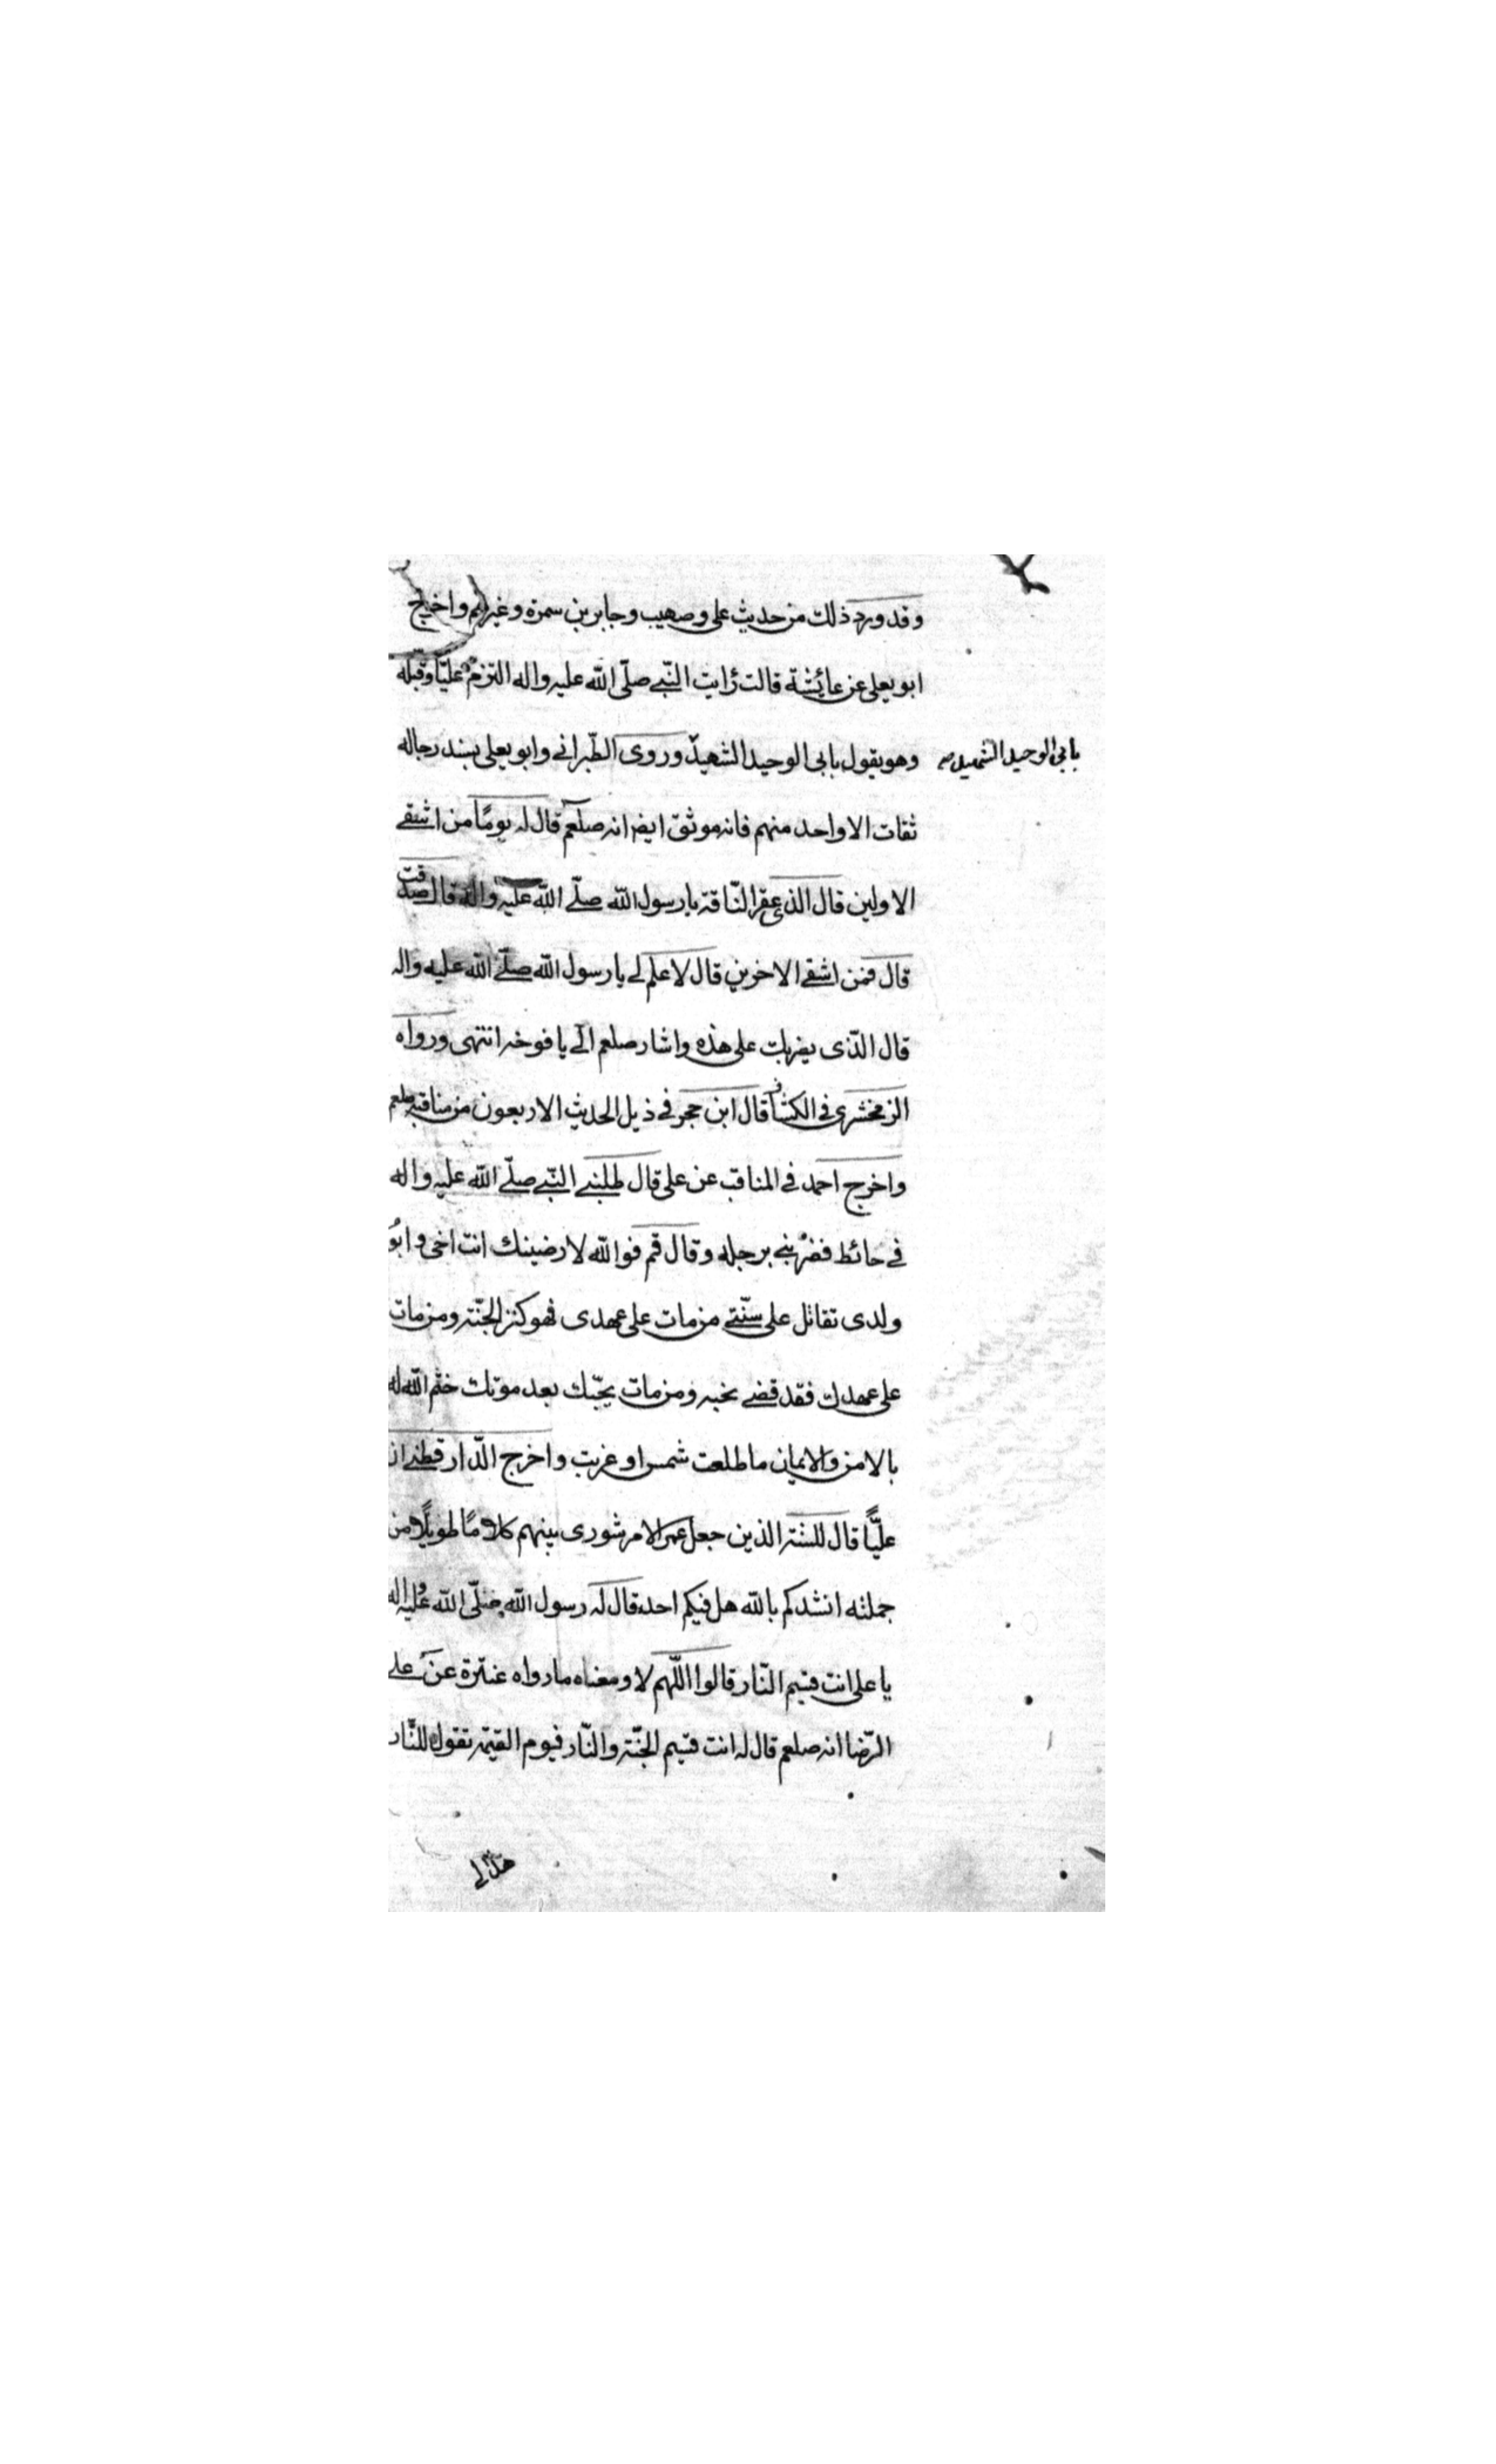 وقد ورد ذلك من حديث على وصهيب وجابر بن سمرة وغيرهم واخرج
ابو يعلى عن عائشة قالت رايت النبي صلّى الله عليه واله التزم عليّا وقبّله
وهو يقول بابى الوحيد الشهيد وروى الطّبرانى وابو يعلى بسند رجاله
بابى الوحيد الشهيد صه
ثقات الا واحد منهم فانه موثق ايضا انه صلعم قال له يومًا من اشقى
الاولين قال الذى عقر النّاقة يا رسول الله صلّى الله عليه واله قال صدقت
قال فمن اشقى الاخرين قال لا علم لى يا رسول الله صلّى الله عليه واله
قال الّذى يضربك على هذه واشار صلعم الى يافوخه انتهى ورواه
الزمخشرى فى الكشاف قال ابن حجر فى ذيل الحديث الاربعون من مناقبه صلعم
واخرج احمد فى المناقب عن على قال طلبنى النّبى صلّى الله عليه واله
فى حائط فضربنى برجله وقال قم فوالله لارضينك انت اخى وابو
ولدى تقاتل على سنّتى من مات على عهدى فهو كنز الجنّة ومن مات
على عهدك فقد قضى نحبه ومن مات يحبّك بعد موتك ختم الله له
بالامن والايمان ما طلعت شمس او غربت واخرج الدّار قطنى ان
عليًّا قال للستة الذين جعل عمر الامر شورى بينهم كلامًا طويلًا من
جملته انشدكم بالله هل فيكم احد قال له رسول الله صلّى الله عليه واله
يا على انت قسيم النّار قالوا اللّهم لا ومعناه ما رواه عنترة عن على
الرّضا انه صلعم قال له انت قسيم الجنّة والنّار فيوم القيمة تقول للنّار
هذا لى